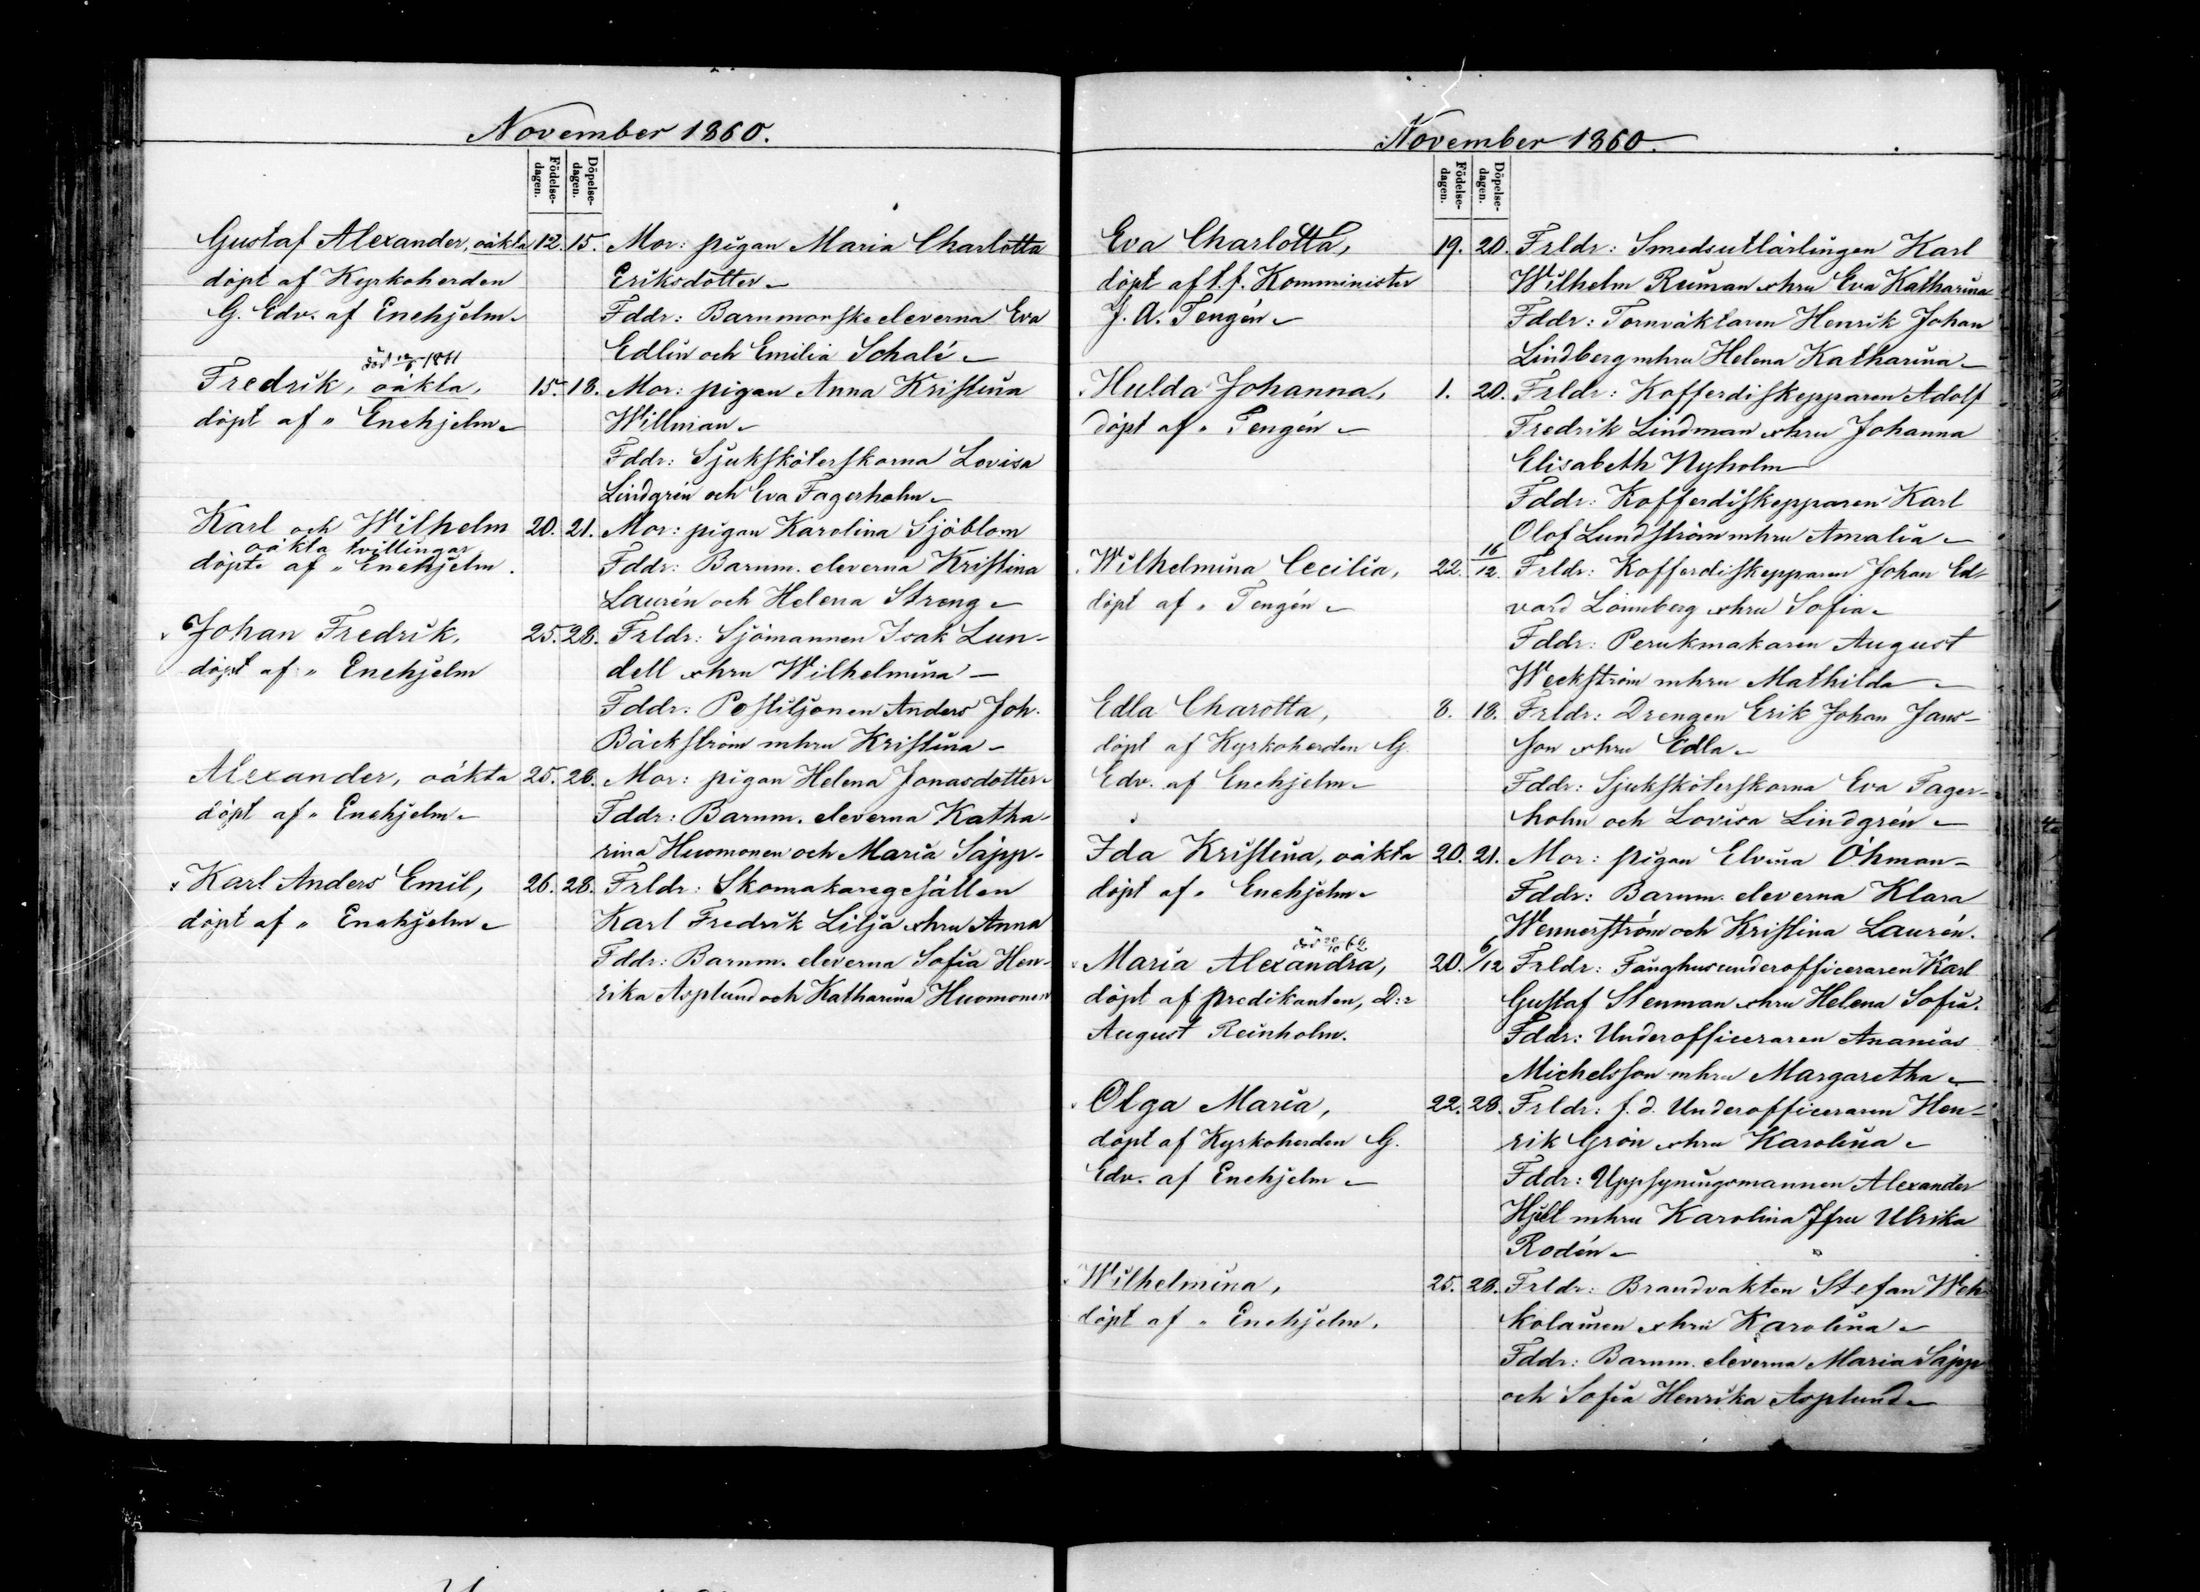 November 1860.
Födelse-
dagen.
Döpelse-
dagen.
Gustaf Alexander, oäkta 12. 15. Mor: pigan Maria Charlotta
döpt af Kyrkoherden Eriksdotter
G. Edv. af Enehjelm Fddr: Barnmorske eleverna Eva
Edlin och Emilia Schalé
död 12/6 1861
Fredrik, oäkta, 15. 18. Mor: pigan Anna Kristina
döpt af " Enehjelm Willman
Fddr: Sjuksköterskorna Lovisa
Lindgrén och Eva Fagerholm
Karl och Wilhelm 20. 21. Mor: pigan Karolina Sjöblom
oäkta tvillingar
döpte af " Enehjelm. Fddr: Barnm. eleverna Kristina
Laurén och Helena Streng
Johan Fredrik, 25. 28. Frldr: Sjömannen Isak Lun-
döpt af " Enehjelm dell o hru Wilhelmina
Fddr: Postiljonen Anders Joh.
Bäckström m hru Kristina
Alexander, oäkta 25. 28. Mor: pigan Helena Jonasdotter
döpt af " Enehjelm Fddr: Barnm. eleverna Katha-
rina Huomonen och Maria Säpp
Karl Anders Emil, 26. 28. Frldr: Skomakaregesällen
döpt af " Enehjelm Karl Fredrik Lilja o hru Anna
Fddr: Barnm. eleverna Sofia Hen-
rika Asplund och Katharina Huomonen
November 1860.
Födelse-
dagen.
Döpelse-
dagen.
Eva Charlotta, 19. 20. Frldr: Smedsutlärlingen Karl
döpt af t.f. Komminister Wilhelm Ruman o hru Eva Katharina
J. A. Tengén Fddr: Tornväktaren Henrik Johan
Lindberg m hru Helena Katharina
Hulda Johanna, 1. 20. Frldr: Kofferdiskepparen Adolf
döpt af " Tengén Fredrik Lindman o hru Johanna
Elisabeth Nyholm
Fddr: Kofferdiskepparen Karl
Olof Lundström m hru Amalia
Wilhelmina Cecilia, 22. 16/12. Frldr: Kofferdiskepparen Johan Ed-
döpt af " Tengén vard Lönnberg o hru Sofia
Fddr: Perukmakaren August
Weckström m hru Mathilda
Edla Charotta, 8. 18. Frldr: Drengen Erik Johan Jans-
döpt af Kyrkoherden G. son o hru Edla
Edv. af Enehjelm Fddr: Sjuksköterskorna Eva Fager-
holm och Lovisa Lindgrén
Ida Kristina, oäkta 20. 21. Mor: pigan Elvina Öhman
döpt af " Enehjelm Fddr: Barnm. eleverna Klara
Wennerström och Kristina Laurén.
död 20/10 62
Maria Alexandra, 20. 6/12 Frldr: Fånghusunderofficeraren Karl
döpt af predikanten, D:r Gustaf Stenman o hru Helena Sofia.
August Reinholm. Fddr: Underofficeraren Ananias
Michelsson m hru Margaretha
Olga Maria, 22. 28. Frldr: f. d. Underofficeraren Hen-
döpt af Kyrkoherden G. rik Grön o hru Karolina
Edv. af Enehjelm Fddr: Uppsyningsmannen Alexander
Hjell m hru Karolina Jfru Ulrika
Rodén
Wilhelmina, 25. 28. Frldr: Brandvakten Stefan Weh-
döpt af " Enehjelm. kolainen o hru Karolina
Fddr: Barnm. eleverna Maria Säpp
och Sofia Henrika Asplund